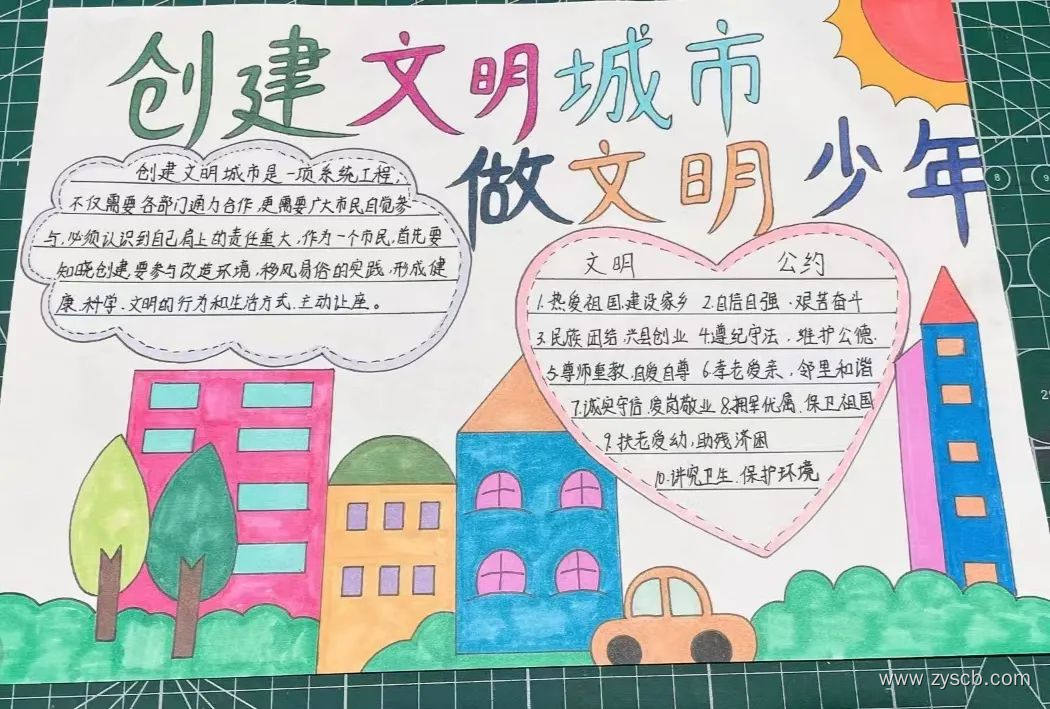 创建文明城市
做文明少年
创建文明城市是一项系统工程,
不仅需要各部门通力合作,更需要广大市民自觉参
与,必须认识到自己肩上的责任重大,作为一个市民,首先要
知晓创建,要参与改造环境,移风易俗的实践,形成健
康、科学、文明的行为和生活方式,主动让座。
文明 公约
1.热爱祖国,建设家乡 2.自信自强、艰苦奋斗
3.民族团结,兴县创业 4.遵纪守法,维护公德.
5.尊师重教,自爱自尊 6.孝老爱亲,邻里和谐
7.诚实守信,爱岗敬业 8.拥军优属,保卫祖国
9.扶老爱幼,助残济困
10.讲究卫生,保护环境
www.zyscb.com